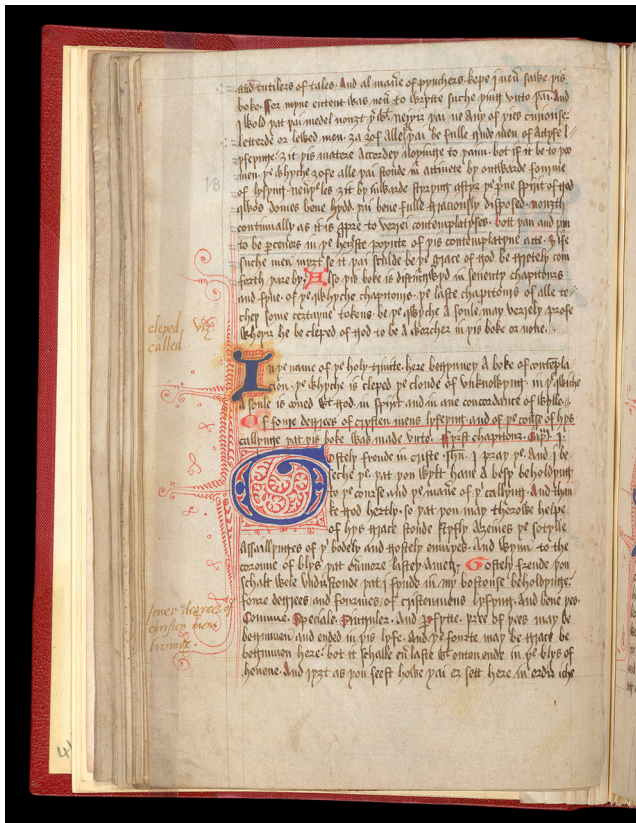 and tutilers of tales. And al maner of pynchers. kepe j neu saiʒe þis
boke. For myne entent was neu to wrytte suche þing vnto þai. And
j wold þat þai medel nouʒt þ wt. neyþr þai ne any of þies curiouse
letterde or lewed men. ʒa of alle þai be fulle gude men of actyfe l
yfeynge. ʒit þis matere Accordeþ noþinge to þaim. bot if it be to þo
men. þe whyche ʒofe alle þai stonde in actiuete by outwarde fourme
of lyfyng. neuþeles ʒit by inwarde styryng aftyr þe pue spirit of god
qwos domes bene hydd. þai bene fulle graciously disposed. nouʒth
continually as it is to verrei contemplatyfes. bott þan and þan
to be parceners in þe heiʒste poynte of þis contemplatyue acte. ʒ ife
suche men myʒt se it þai schulde be þe grace of god be gretely com
forth þare by. Also þis boke is distingwyd in seuenty chapitours
and fyue. of þe whyche chapitours. þe laste chapitours of alle te
cheþ some certayne tokens. be þe whyche A soule may verrely profe
wheþr he be cleped of god to be A worcher in þis boke or none.
cleped viz
called
In þe name of þe holy trinite. here begynneþ A boke of contēpla
cion. þe whyche is cleped þe cloude of vnknowyng. in þe qwiche
A soule is oned wt god. in spirit and in ane concordance of wylle.
Of foure degrees of cristen mens lyfeyng. and of þe course of hys
callynge þat þis boke was made vnto. Fyrst chapitour. Cap. j.
Gostely frende in criste Ihu. I pray þe. And j be
seche þe. þat þou wylt haue A besy beholdyng
to þe course and þe maner of þ callyng. And than
ke god hertly. so þat þou may thorowe helpe
of hys grace stonde styfly Aʒeines þe sotylle
Assaillynges of þ bodely and gostely enmyes. And wynn to the
coroune of blys þat eumore lasteþ. Amen. Gostely frende þou
schalt wele vndstonde þat j fynde in my bostouse beholdynge.
foure degrees and fourmes of cristenmens lyfyng. And bene þes.
Comune. Speciale. Singuler. And Pfyte. þree of þees may be
begunnen and ended in þis lyfe. And þe fourte may be grace be
begunnen here. bot it schalle eu laste wtouten ende in þe blys of
heuene. And ryʒt as þou seest howe þai er sett here in ordir iche
fower degrees of
christen mens
livinge.